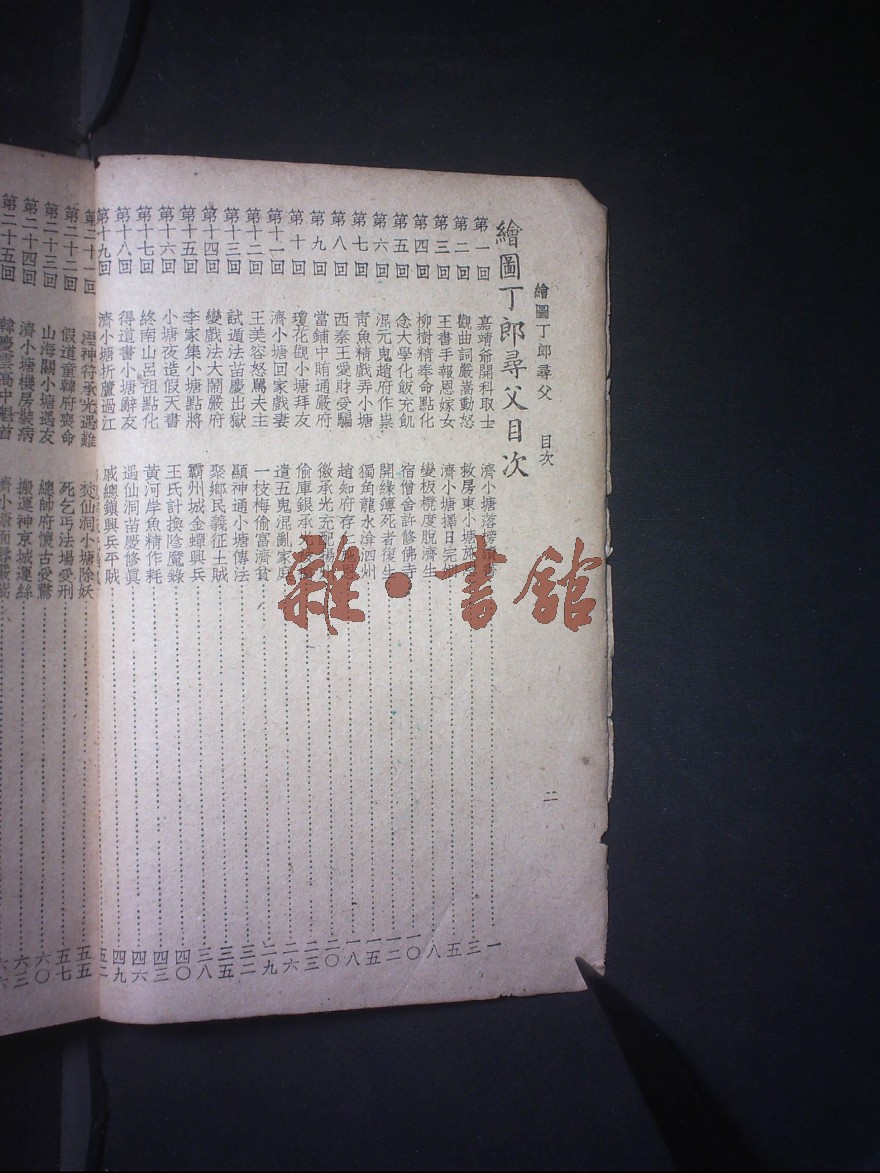 繪圖丁郎尋父 目次 二
繪圖丁郎尋父目次
第一回 嘉靖爺開科取士 濟小塘落榜 一
第二回 觀曲詞嚴嵩動怒 救房東小塘施 三
第三回 王書手報恩嫁女 濟小塘擇日完 五
第四回 柳樹精奉命點化 變板櫈度脫濟生 八
第五回 念大學化飯充飢 宿僧舍許修佛寺 一〇
第六回 混元鬼趙府作祟 開緣簿死者復生 一二
第七回 青魚精戲弄小塘 獨角龍水渰泗州 一五
第八回 西秦王愛財受騙 趙知府存仁 一八
第九回 當鋪中賄通嚴府 徽承光充配 二〇
第十回 瓊花觀小塘拜友 偷庫銀承光 二三
第十一回 濟小塘回家戲妻 遣五鬼混亂家庭 二六
第十二回 王美容怒罵夫主 一枝梅偷富濟貧 二九
第十三回 試遁法苗慶出獄 顯神通小塘傳法 三二
第十四回 變戲法大鬧嚴府 聚鄉民義征土賊 三五
第十五回 李家集小塘點將 霸州城金蟬興兵 三八
第十六回 小塘夜造假天書 王氏計換陰魔錄 四〇
第十七回 終南山呂祖點化 黃河岸魚精作耗 四三
第十八回 得道書小塘辭友 遇仙洞苗慶修眞 四六
第十九回 濟小塘折蘆過江 戚總鎮興兵平賊 四九
五二
第二十一回 神符承光遇難 焚仙洞小塘除妖 五五
第二十二回 假道童韓府喪命 死乞丐法場受刑 五七
第二十三回 山海關小塘遇友 總帥府懷古受驚 六〇
第二十四回 濟小塘機房裝病 搬運神京城運絲 六三
第二十五回 韓慶雲高中魁首 濟小塘 六六
雜·書館